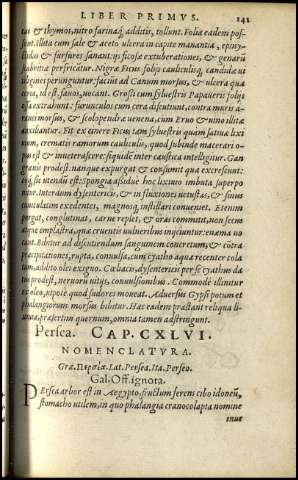 LIBER PRIMVS. 141
tas & thymos, nitro farinaq́; additis, tollunt. Folia eadem pos-
sunt. Illita cum sale & aceto ulcera in capite manantia, epiny-
ctidas & furfures sanant: ijs ficosæ exuberationes, & genarũ
scabritia perfricatur. Nigræ Ficus folijs cauliculisq́;, candidæ ut
aligines perunguntur: faciũt ad Canum morsus, & ulcera quæ
ceria, ad est, fauos, uocant. Grossi cum syluestris Papaueris folijs
ossa extrahunt: furunculos cum cera discutiunt, contra muris a-
ranei morsus, & scolopendræ uenena, cum Eruo & uino illitæ
auxiliantur. Fit ex cinere Ficus tam syluestris quàm satiuæ lixi
uium, crematis ramorum cauliculis, quod subinde macerari o-
pus est & inueterascere: siquidẽ inter caustica intelligitur. Gan
grænis prodest: nanque expurgat & consumit quæ excrescunt:
eo sic utendũ est: spongia assiduè hoc lixiuio imbuta superpo
nitur. Interdum dysentericis, & in fluxiones uetustas, & sinus
cuniculatim exedentes, magnosq́; instillari conuenit. Etenim
purgat, conglutinat, carne replet, & oras committit, non secus
atque emplastra, quæ cruentis vulneribus inijciuntur: enæma uo
cant. Bibitur ad discutiendum sanguinem concretum, & cõtra
præcipitationes, rupta, conuulsa, cum cyatho aquæ recenter cola
tum, addito olei exiguo. Cœliacis, dysentericis per se cyathus da
tus prodest, neruorũ vitijs, conuulsionibus. Commodè illinitur
ex oleo, utpote quod sudores moueat. Aduersus Gypsi potum et
phalangiorum morsus bibitur. Hæc eadem præstant reliqua li-
xiuia, præsertim quernum, omnia tamen adstringunt.
Persea. CAP. CXLVI.
NOMENCLATVRA.
Græ. Περσία. Lat. Persea. Ita. Perseo.
Gal. Off. ignota.
PErsea arbor est in Aegypto, fructum ferens cibo idoneũ,
stomacho utilem, in quo phalangia cranocolapta nomine
inue